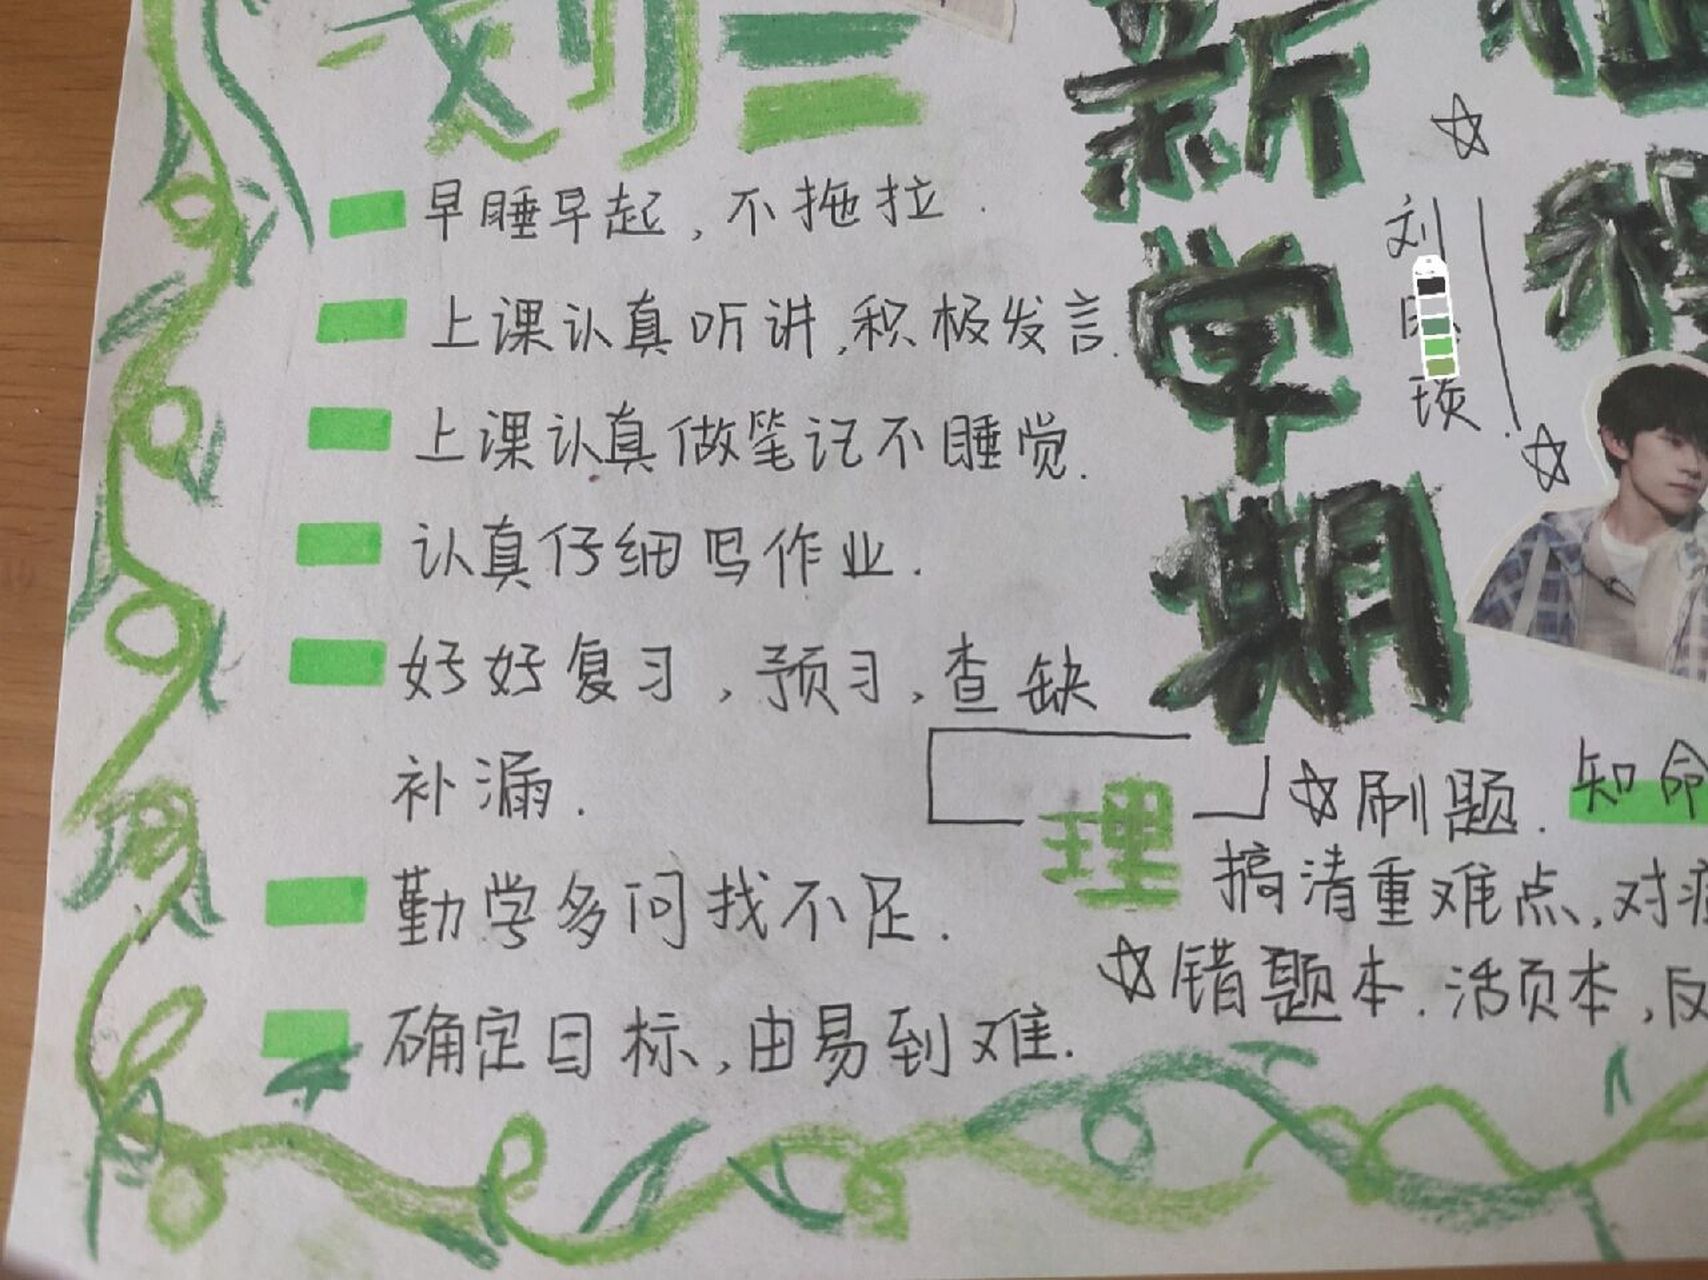 划三
早睡早起，不拖拉.
上课认真听讲,积极发言.
上课认真做笔记不睡觉.
认真仔细写作业.
好好复习，预习，查缺
补漏.
勤学多问找不足.
确定目标，由易到难.
新
学
期
刘
琰
理
☆刷题.知命
搞清重难点,对症
☆错题本.活页本,反